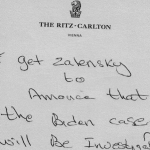 THE RITZ-CARLTON
VIENNA
get Zalensky
to
Annouce that
the Biden case
will Be Investigat